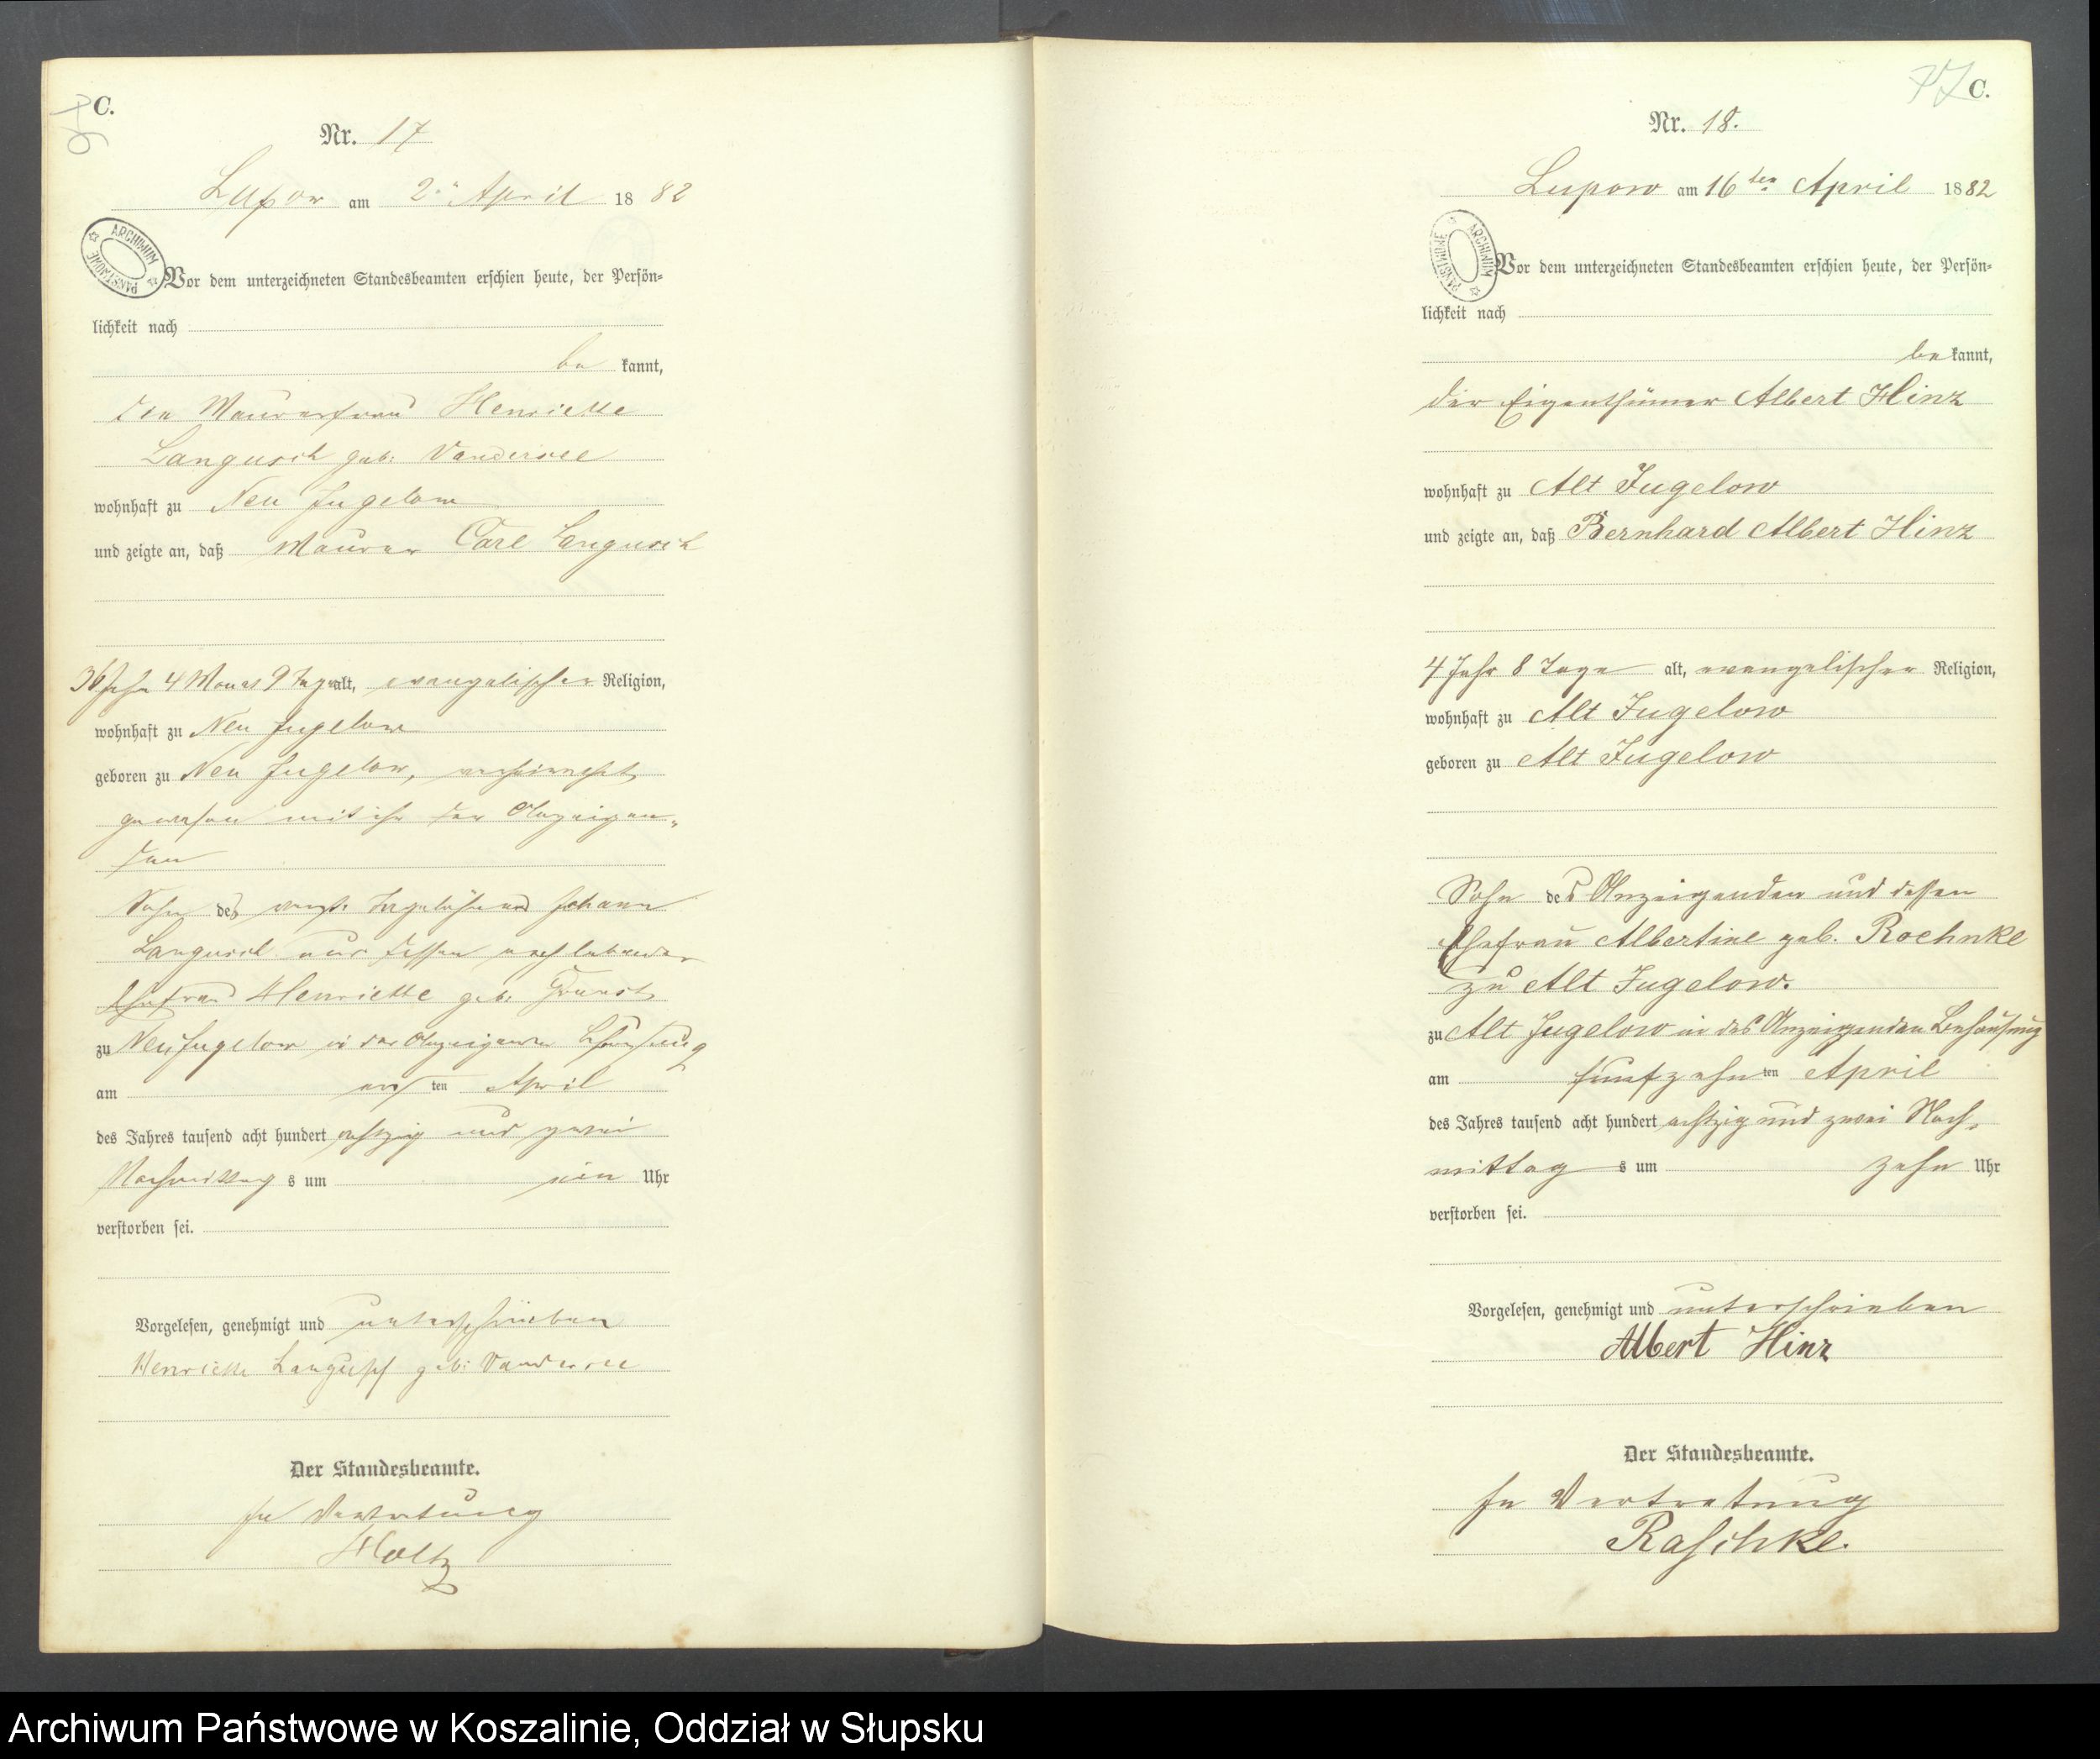 C.
Nr. 17
Lupow am 2ten April 1882
ARCHIWUM PAŃSTWOWE
Vor dem unterzeichneten Standesbeamten erschien heute, der Persön-
lichkeit nach
be kannt,
die Maurerfrau Henriette
Langusch geb: Vandersee
wohnhaft zu Neu Jugelow
und zeigte an, daß Maurer Carl Langusch
36 Jahr 4 Monat 9 Tage alt, evangelischer Religion,
wohnhaft zu Neu Jugelow
geboren zu Neu Jugelow, verheirathet
gewesen mit ihr der Anzeigen-
den
Sohn des Tagelöhners Johann
Langusch und dessen
Ehefrau Henriette geb:
zu Neu Jugelow in der Anzeigenden Behausung
am ersten April
des Jahres tausend acht hundert achtzig und zwei
Nachmittag s um ein Uhr
verstorben sei.
Vorgelesen, genehmigt und unterschrieben
Henriette Langusch geb: Vandersee
Der Standesbeamte.
In Vertretung
Holtz
77 C.
Nr. 18.
Lupow am 16ten April 1882
ARCHIWUM PAŃSTWOWE
Vor dem unterzeichneten Standesbeamten erschien heute, der Persön-
lichkeit nach
be kannt,
der Eigenthümer Albert Hinz
wohnhaft zu Alt Jugelow
und zeigte an, daß Bernhard Albert Hinz
4 Jahr 8 Tage alt, evangelischer Religion,
wohnhaft zu Alt Jugelow
geboren zu Alt Jugelow
Sohn des Anzeigenden und dessen
Ehefrau Albertine geb. Roehnke
zu Alt Jugelow.
zu Alt Jugelow in des Anzeigenden Behausung
am fünfzehnten April
des Jahres tausend acht hundert achtzig und zwei Nach-
mittag s um zehn Uhr
verstorben sei.
Vorgelesen, genehmigt und unterschrieben
Albert Hinz
Der Standesbeamte.
In Vertretung
Raschke.
Archiwum Państwowe w Koszalinie, Oddział w Słupsku